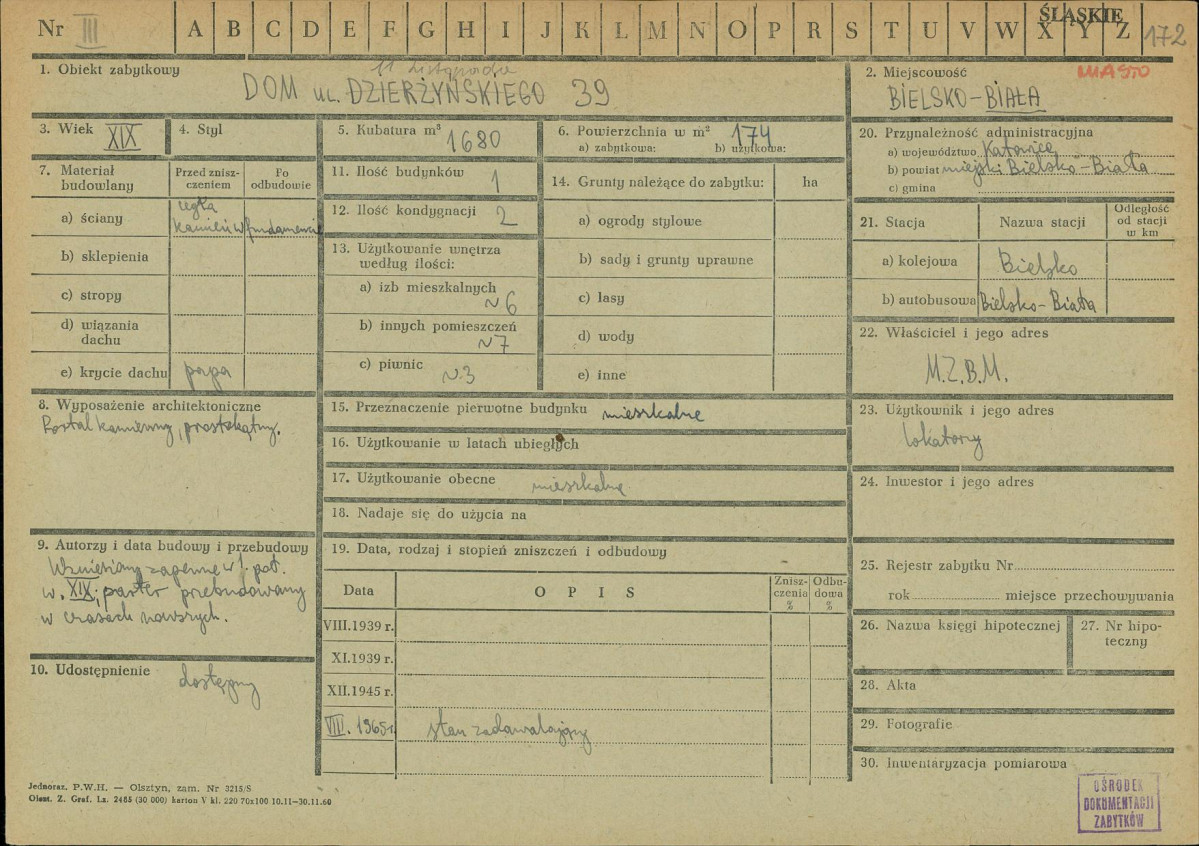 Nr III A B C D E F G H I J K L M N O P R S T U V W X Y Z ŚLĄSKIE 172
1. Obiekt zabytkowy
11 Listopada
DOM UL. DZIERŻYŃSKIEGO 39
2. Miejscowość MIASTO
BIELSKO-BIAŁA
3. Wiek XIX
4. Styl
5. Kubatura m³ 1680
6. Powierzchnia w m² 174
a) zabytkowa: b) użytkowa:
20. Przynależność administracyjna
a) województwo Katowice
b) powiat miejski Bielsko-Biała
c) gmina
7. Materiał budowlany
Przed znisz-
czeniem
Po
odbudowie
a) ściany cegła
kamień w fundamencie
b) sklepienia
c) stropy
d) wiązania
dachu
e) krycie dachu papa
11. Ilość budynków 1
12. Ilość kondygnacji 2
13. Użytkowanie wnętrza
według ilości:
a) izb mieszkalnych
~6
b) innych pomieszczeń
~7
c) piwnic
~3
14. Grunty należące do zabytku: ha
a) ogrody stylowe
b) sady i grunty uprawne
c) lasy
d) wody
e) inne
21. Stacja Nazwa stacji
Odległość
od stacji
w km
a) kolejowa Bielsko
b) autobusowa Bielsko-Biała
22. Właściciel i jego adres
M.Z.B.M.
8. Wyposażenie architektoniczne
Portal kamienny, prostokątny.
15. Przeznaczenie pierwotne budynku mieszkalne
16. Użytkowanie w latach ubiegłych
17. Użytkowanie obecne mieszkalne
18. Nadaje się do użycia na
23. Użytkownik i jego adres
lokatorzy
24. Inwestor i jego adres
9. Autorzy i data budowy i przebudowy
Wzniesiony zapewne w 1. poł.
w. XIX; parter przebudowany
w czasach nowszych.
10. Udostępnienie
dostępny
19. Data, rodzaj i stopień zniszczeń i odbudowy
Data OPIS
Znisz-
czenia
%
Odbu-
dowa
%
VIII.1939 r.
XI.1939 r.
XII.1945 r.
VIII. 1965 r. stan zadawalający
25. Rejestr zabytku Nr
rok miejsce przechowywania
26. Nazwa księgi hipotecznej
27. Nr hipo-
teczny
28. Akta
29. Fotografie
30. Inwentaryzacja pomiarowa
Jednoraz. P.W.H. — Olsztyn, zam. Nr 3215/S
Olszt. Z. Graf. Lz. 2485 (30 000) karton V kl. 220 70x100 10.11—30.11.60
OŚRODEK
DOKUMENTACJI
ZABYTKÓW